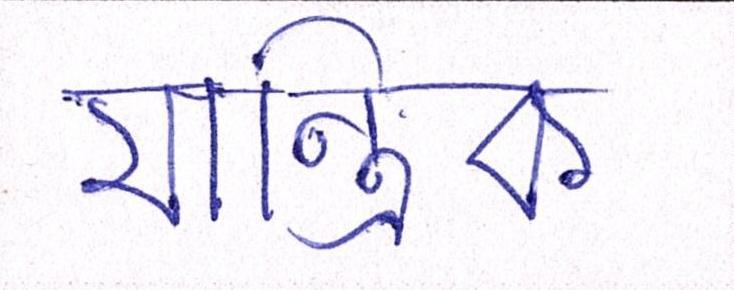 যান্ত্রিক